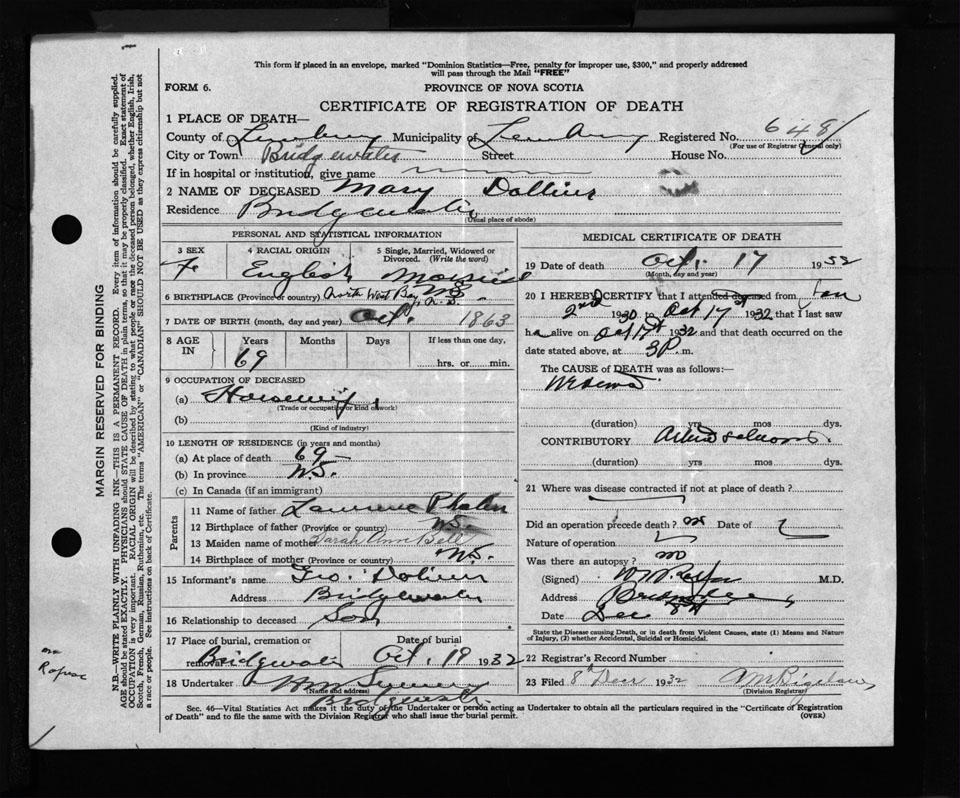 This form if placed in an envelope, marked "Dominion Statistics—Free, penalty for improper use, $300," and properly addressed
will pass through the Mail "FREE"
FORM 6.
PROVINCE OF NOVA SCOTIA
CERTIFICATE OF REGISTRATION OF DEATH
1 PLACE OF DEATH—
County of Municipality of Registered No. 648
(For use of Registrar General only)
City or Town Bridgewater Street House No.
If in hospital or institution, give name
2 NAME OF DECEASED Mary
Residence Bridgewater
(Usual place of abode)
PERSONAL AND STATISTICAL INFORMATION
3 SEX 4 RACIAL ORIGIN 5 Single, Married, Widowed or
Divorced. (Write the word)
F. English Married
6 BIRTHPLACE (Province or country) North West Bay N.S.
7 DATE OF BIRTH (month, day and year) Oct. 1863
8 AGE IN Years Months Days If less than one day,
69 hrs. or min.
9 OCCUPATION OF DECEASED
(a) Housewife
(Trade or occupation or kind of work)
(b)
(Kind of industry)
10 LENGTH OF RESIDENCE (in years and months)
(a) At place of death 69 —
(b) In province N.S.
(c) In Canada (if an immigrant)
Parents
11 Name of father Lawrence
12 Birthplace of father (Province or country) N.S.
13 Maiden name of mother Sarah Ann Bell
14 Birthplace of mother (Province or country) N.S.
15 Informant's name Geo.
Address Bridgewater
16 Relationship to deceased Son
17 Place of burial, cremation or removal Date of burial
Bridgewater Oct. 19 1932
18 Undertaker Wm
(Name and address)
Bridgewater
MEDICAL CERTIFICATE OF DEATH
19 Date of death Oct. 17 1932
(Month, day and year)
20 I HEREBY CERTIFY that I attended deceased from Jan
2nd 1930 to Oct 17 1932 that I last saw
h alive on Oct 1932 and that death occurred on the
date stated above, at 3 P. m.
The CAUSE of DEATH was as follows:—
(duration) yrs mos dys.
CONTRIBUTORY
(duration) yrs mos dys.
21 Where was disease contracted if not at place of death?
Did an operation precede death? no Date of
Nature of operation
Was there an autopsy? no
(Signed) M.D.
Address
Date Dec 8th
State the Disease causing Death, or in death from Violent Causes, state (1) Means and Nature
of Injury, (2) whether Accidental, Suicidal or Homicidal.
22 Registrar's Record Number
23 Filed 8th Decr 1932 Bigelow
(Division Registrar)
Sec. 46—Vital Statistics Act makes it the duty of the Undertaker or person acting as Undertaker to obtain all the particulars required in the "Certificate of Registration
of Death" and to file the same with the Division Registrar who shall issue the burial permit.
(OVER)
MARGIN RESERVED FOR BINDING
N.B.—WRITE PLAINLY WITH UNFADING INK—THIS IS A PERMANENT RECORD. Every item of information should be carefully supplied.
AGE should be stated EXACTLY. PHYSICIANS should STATE CAUSE OF DEATH in plain terms, so that it may be properly classified. Exact statement of
OCCUPATION is very important. RACIAL ORIGIN will be described by stating to what people or race the deceased person belonged, whether English, Irish,
Scotch, French, German, Russian, Ruthenian, etc. The terms "AMERICAN" or "CANADIAN" SHOULD NOT BE USED as they express citizenship but not
a race or people. See instructions on back of Certificate.